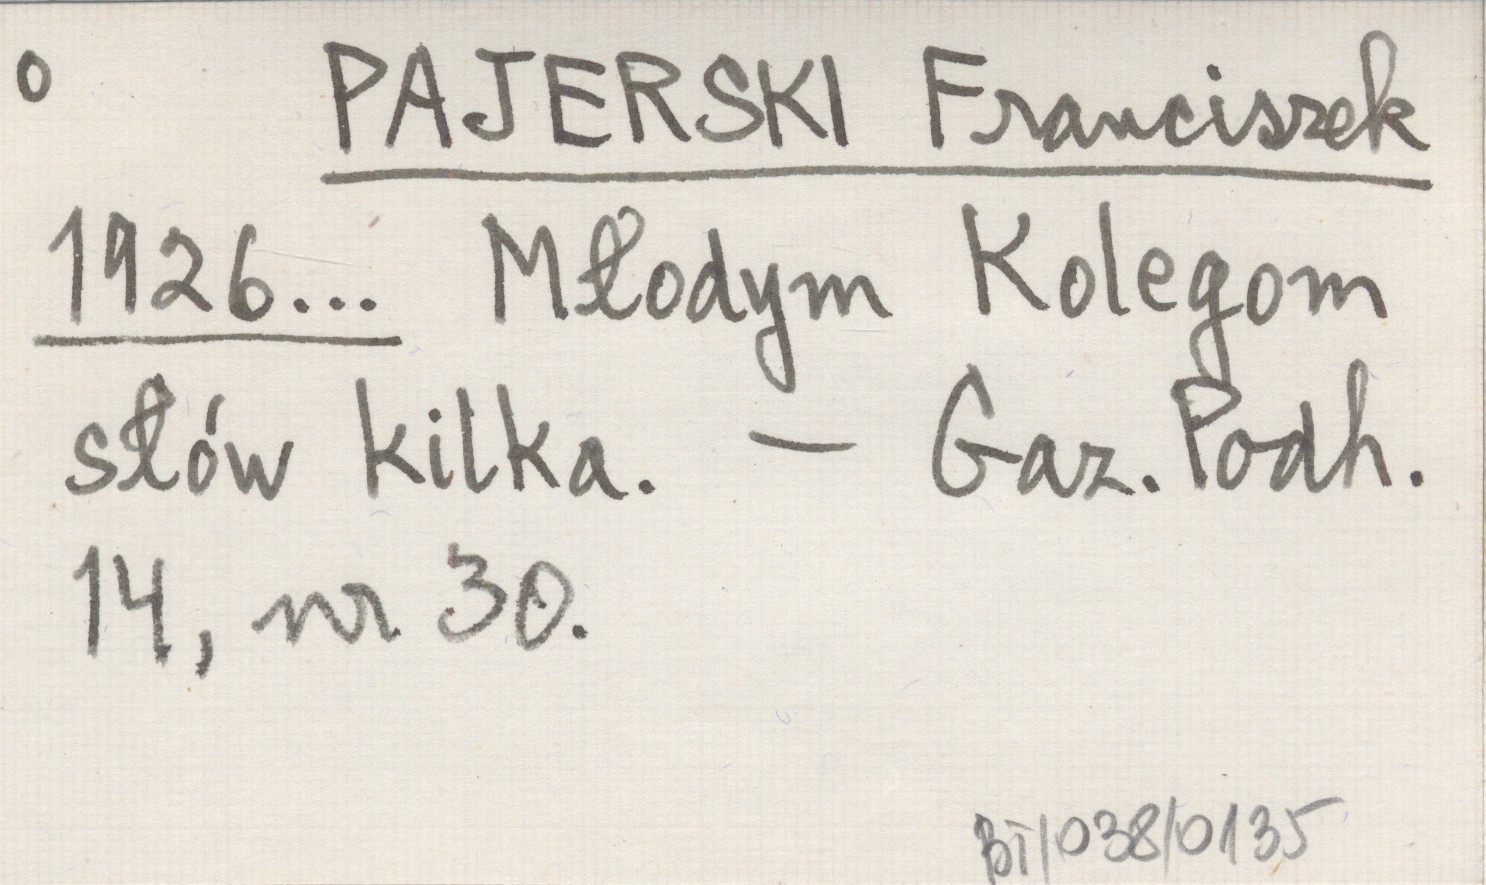 o PAJERSKI Franciszek
1926... Młodym Kolegom
słów kilka. — Gaz. Podh.
14, nr 30.
BT/038/0135